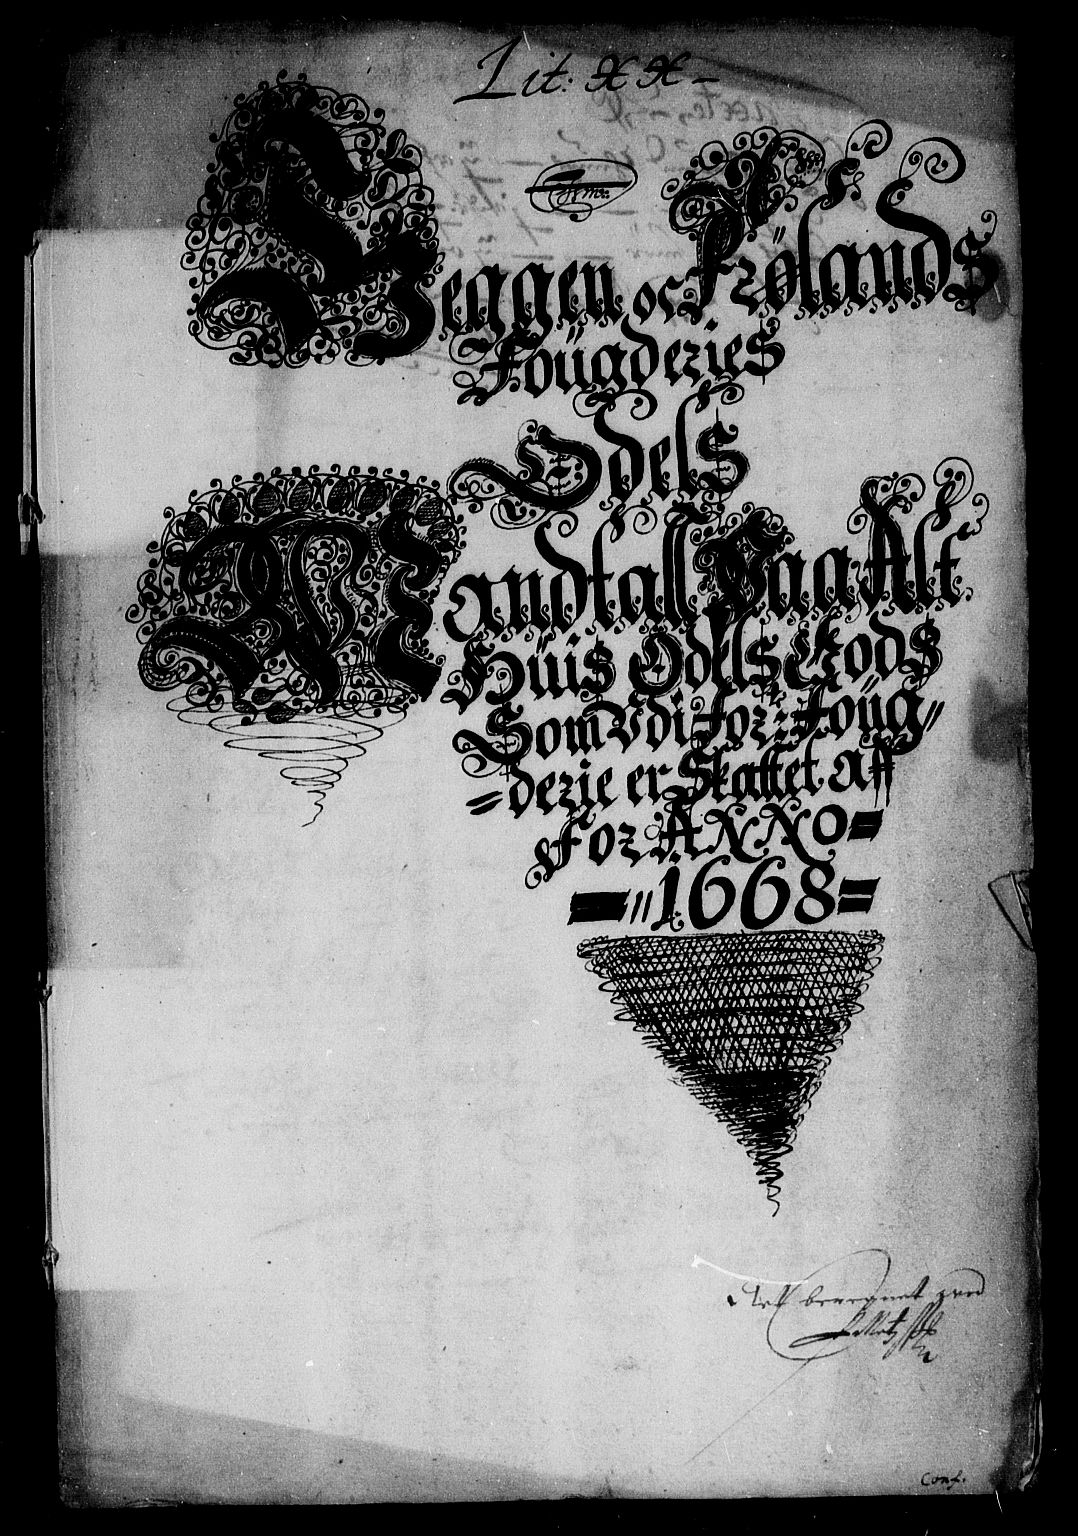 Lit: XX-
Veggen oc Frölands
Foügderies
Odels
Mandtall Paa Alt
Hüüs Odels Gods
Som Vdi for: Foüg
derie er Skattet aff
For ANNO
1668
Conf.